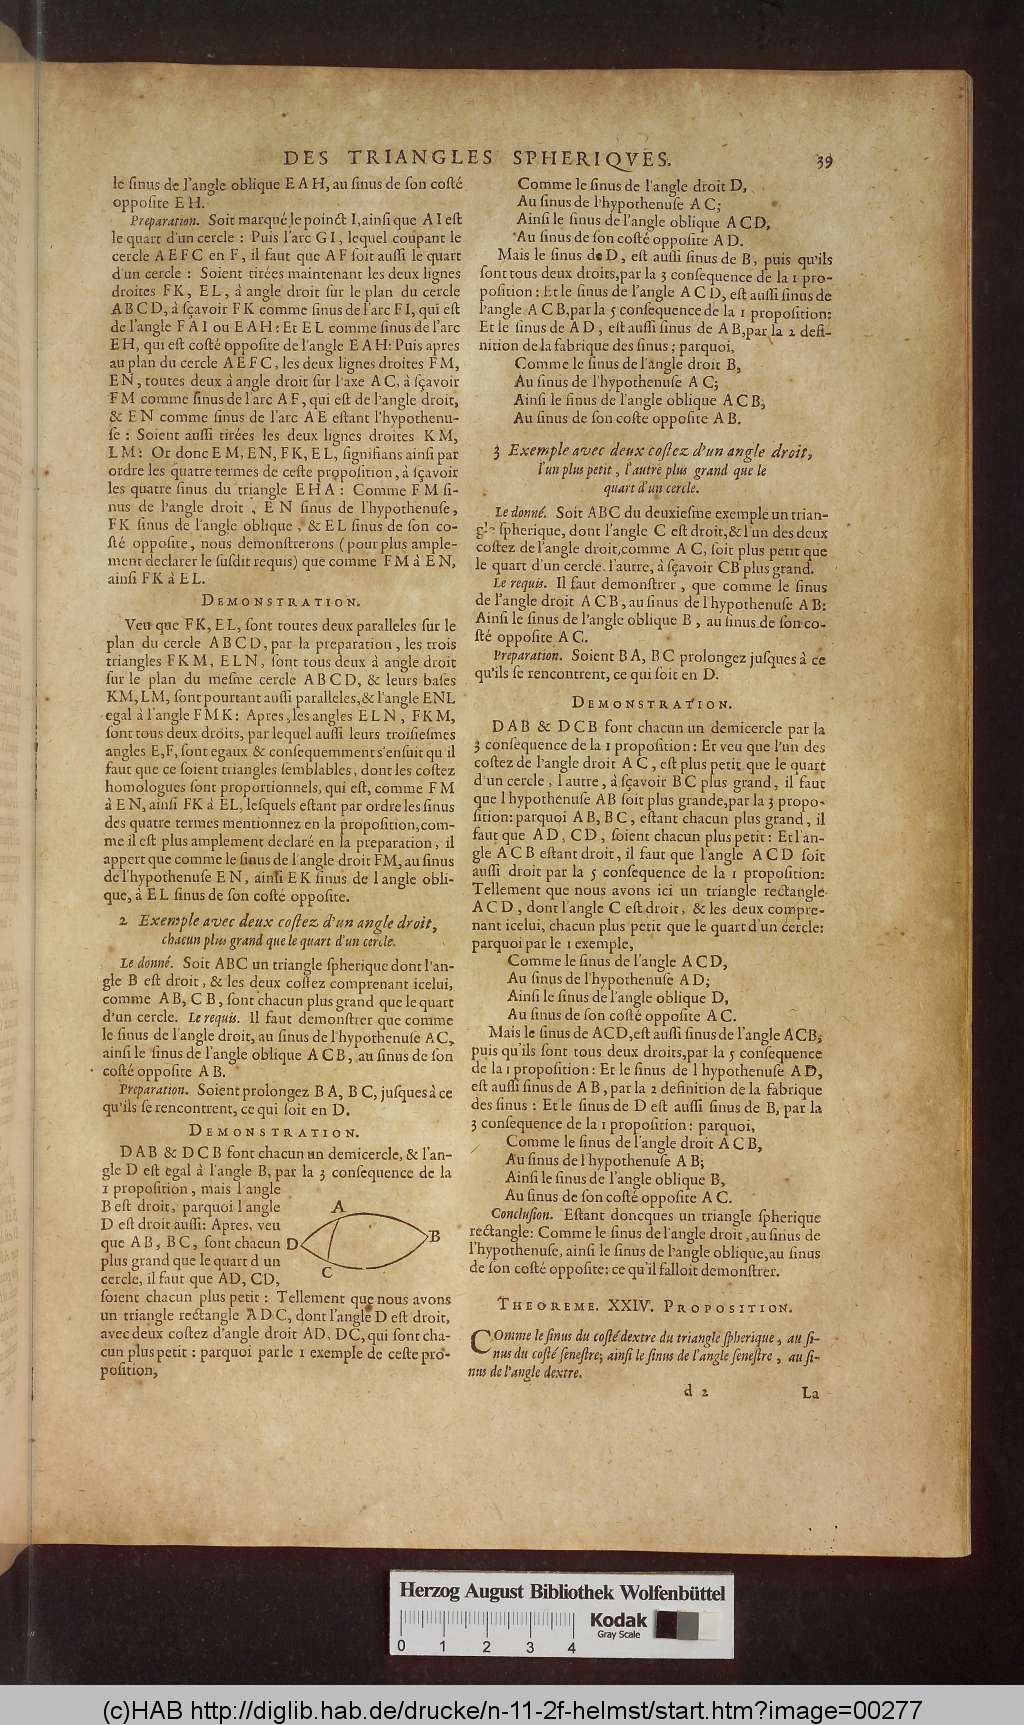 DES TRIANGLES SPHERIQVES. 39
le ſinus de l'angle oblique E A H, au ſinus de ſon coſté
oppoſite E H.
Preparation. Soit marqué le poinct I, ainſi que A I eſt
le quart d'un cercle : Puis l'arc G I, lequel coupant le
cercle A E F C en F, il faut que A F ſoit auſſi le quart
d'un cercle : Soient tirées maintenant les deux lignes
droites F K, E L, à angle droit ſur le plan du cercle
A B C D, à ſçavoir F K comme ſinus de l'arc F I, qui eſt
de l'angle F A I ou E A H : Et E L comme ſinus de l'arc
E H, qui eſt coſté oppoſite de l'angle E A H: Puis apres
au plan du cercle A E F C, les deux lignes droites F M,
E N, toutes deux à angle droit ſur l'axe A C, à ſçavoir
F M comme ſinus de l'arc A F, qui eſt de l'angle droit,
& E N comme ſinus de l'arc A E eſtant l'hypothenu-
ſe : Soient auſſi tirées les deux lignes droites K M,
L M: Or donc E M, E N, F K, E L, ſignifians ainſi par
ordre les quatre termes de ceſte propoſition, à ſçavoir
les quatre ſinus du triangle E H A : Comme F M ſi-
nus de l'angle droit, E N ſinus de l'hypothenuſe,
F K ſinus de l'angle oblique, & E L ſinus de ſon co-
ſté oppoſite, nous demonſtrerons (pour plus ample-
ment declarer le ſuſdit requis) que comme F M à E N,
ainſi F K à E L.
DEMONSTRATION.
Veu que F K, E L, ſont toutes deux paralleles ſur le
plan du cercle A B C D, par la preparation, les trois
triangles F K M, E L N, ſont tous deux à angle droit
ſur le plan du meſine cercle A B C D, & leurs baſes
K M, L M, ſont pourtant auſſi paralleles, & l'angle ENL
egal à l'angle F M K : Apres, les angles E L N, F K M,
ſont tous deux droits, par lequel auſſi leurs troiſieſmes
angles E, F, ſont egaux & conſequemment s'enſuit qu'il
faut que ce ſoient triangles ſemblables, dont les coſtez
homologues ſont proportionnels, qui eſt, comme F M
à E N, ainſi F K à E L, leſquels eſtant par ordre les ſinus
des quatre termes mentionnez en la propoſition, com-
me il eſt plus amplement declaré en la preparation, il
appert que comme le ſinus de l'angle droit FM, au ſinus
de l'hypothenuſe E N, ainſi E K ſinus de l angle obli-
que, à E L ſinus de ſon coſté oppoſite.
2 Exemple avec deux coſtez d'un angle droit,
chacun plus grand que le quart d'un cercle.
Le donné. Soit ABC un triangle ſpherique dont l'an-
gle B eſt droit, & les deux coſtez comprenant icelui,
comme A B, C B, ſont chacun plus grand que le quart
d'un cercle. Le requis. Il faut demonſtrer que comme
le ſinus de l'angle droit, au ſinus de l'hypothenuſe A C,
ainſi le ſinus de l'angle oblique A C B, au ſinus de ſon
coſté oppoſite A B.
Preparation. Soient prolongez B A, B C, juſques à ce
qu'ils ſe rencontrent, ce qui ſoit en D.
DEMONSTRATION.
D A B & D C B font chacun un demicercle, & l'an-
gle D eſt egal à l'angle B, par la 3 conſequence de la
1 propoſition, mais l'angle
B eſt droit, parquoi l'angle
D eſt droit auſſi: Apres, veu
que A B, B C, ſont chacun
plus grand que le quart d un
cercle, il faut que AD, CD,
ſoient chacun plus petit : Tellement que nous avons
un triangle rectangle A D C, dont l'angle D eſt droit,
avec deux coſtez d'angle droit A D, D C, qui ſont cha-
cun plus petit : parquoi par le 1 exemple de ceſte pro-
poſition,
A
B
D
C
Comme le ſinus de l'angle droit D,
Au ſinus de l'hypothenuſe A C;
Ainſi le ſinus de l'angle oblique A C D,
Au ſinus de ſon coſté oppoſite A D.
Mais le ſinus de D, eſt auſſi ſinus de B, puis qu'ils
ſont tous deux droits, par la 3 conſequence de la 1 pro-
poſition : Et le ſinus de l'angle A C D, eſt auſſi ſinus de
l'angle A C B, par la 5 conſequence de la 1 propoſition:
Et le ſinus de A D, eſt auſſi ſinus de A B, par la 2 defi-
nition de la fabrique des ſinus ; parquoi,
Comme le ſinus de l'angle droit B,
Au ſinus de l'hypothenuſe A C;
Ainſi le ſinus de l'angle oblique A C B,
Au ſinus de ſon coſte oppoſite A B.
3 Exemple avec deux coſtez d'un angle droit,
l'un plus petit, l'autre plus grand que le
quart d'un cercle.
Le donné. Soit ABC du deuxieſme exemple un trian-
gle ſpherique, dont l'angle C eſt droit, & l'un des deux
coſtez de l'angle droit, comme A C, ſoit plus petit que
le quart d'un cercle, l'autre, à ſçavoir CB plus grand.
Le requis. Il faut demonſtrer, que comme le ſinus
de l'angle droit A C B, au ſinus de l hypothenuſe A B:
Ainſi le ſinus de l'angle oblique B, au ſinus de ſon co-
ſté oppoſite A C.
Preparation. Soient B A, B C prolongez juſques à ce
qu'ils ſe rencontrent, ce qui ſoit en D.
DEMONSTRATION.
D A B & D C B font chacun un demicercle par la
3 conſequence de la 1 propoſition : Et veu que l'un des
coſtez de l'angle droit A C, eſt plus petit que le quart
d'un cercle, l autre, à ſçavoir B C plus grand, il faut
que l hypothenuſe AB ſoit plus grande, par la 3 propo-
ſition: parquoi A B, B C, eſtant chacun plus grand, il
faut que A D, C D, ſoient chacun plus petit : Et l'an-
gle A C B eſtant droit, il faut que l'angle A C D ſoit
auſſi droit par la 5 conſequence de la 1 propoſition:
Tellement que nous avons ici un triangle rectangle
A C D, dont l'angle C eſt droit, & les deux compre-
nant icelui, chacun plus petit que le quart d'un cercle:
parquoi par le 1 exemple,
Comme le ſinus de l'angle A C D,
Au ſinus de l'hypothenuſe A D;
Ainſi le ſinus de l'angle oblique D,
Au ſinus de ſon coſté oppoſite A C.
Mais le ſinus de ACD, eſt auſſi ſinus de l'angle ACB,
puis qu'ils ſont tous deux droits, par la 5 conſequence
de la 1 propoſition : Et le ſinus de l hypothenuſe A D,
eſt auſſi ſinus de A B, par la 2 definition de la fabrique
des ſinus : Et le ſinus de D eſt auſſi ſinus de B, par la
3 conſequence de la 1 propoſition : parquoi,
Comme le ſinus de l'angle droit A C B,
Au ſinus de l hypothenuſe A B;
Ainſi le ſinus de l'angle oblique B,
Au ſinus de ſon coſté oppoſite A C.
Concluſion. Eſtant doncques un triangle ſpherique
rectangle: Comme le ſinus de l'angle droit, au ſinus de
l'hypothenuſe, ainſi le ſinus de l'angle oblique, au ſinus
de ſon coſté oppoſite: ce qu'il falloit demonſtrer.
THEOREME. XXIV. PROPOSITION.
COmme le ſinus du coſté dextre du triangle ſpherique, au ſi-
nus du coſté ſeneſtre; ainſi le ſinus de l'angle ſeneſtre, au ſi-
nus de l'angle dextre.
d 2 La
Herzog August Bibliothek Wolfenbüttel
0 1 2 3 4
Kodak
Gray Scale
(c)HAB http://diglib.hab.de/drucke/n-11-2f-helmst/start.htm?image=00277